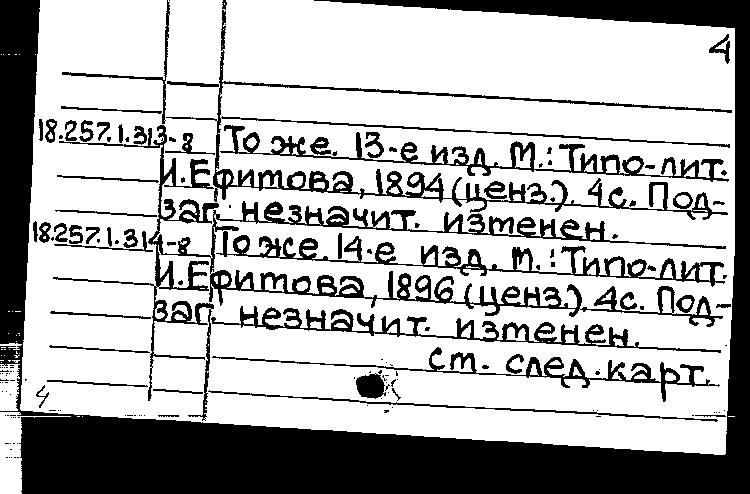 4
18.257.1.313-8 То же. 13-е изд. М.: Типо-лит.
И. Ефимова, 1894 (ценз.). 4с. Под-
заг. незначит. изменен.
18.257.1.314-8 То же. 14-е изд. М.: Типо-лит.
И. Ефимова, 1896 (ценз.). 4с. Под-
заг. незначит. изменен.
см. след. карт.
4